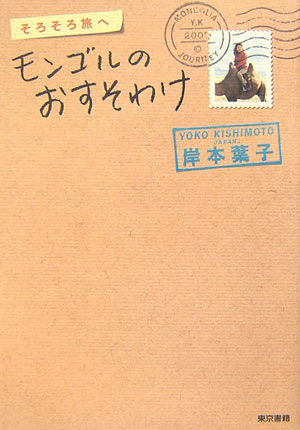 そろそろ旅へ
モンゴルの
おすそわけ
MONGOLIA
Y.K
©
JOURNEY
YOKO KISHIMOTO
JAPAN.
岸本葉子
東京書籍